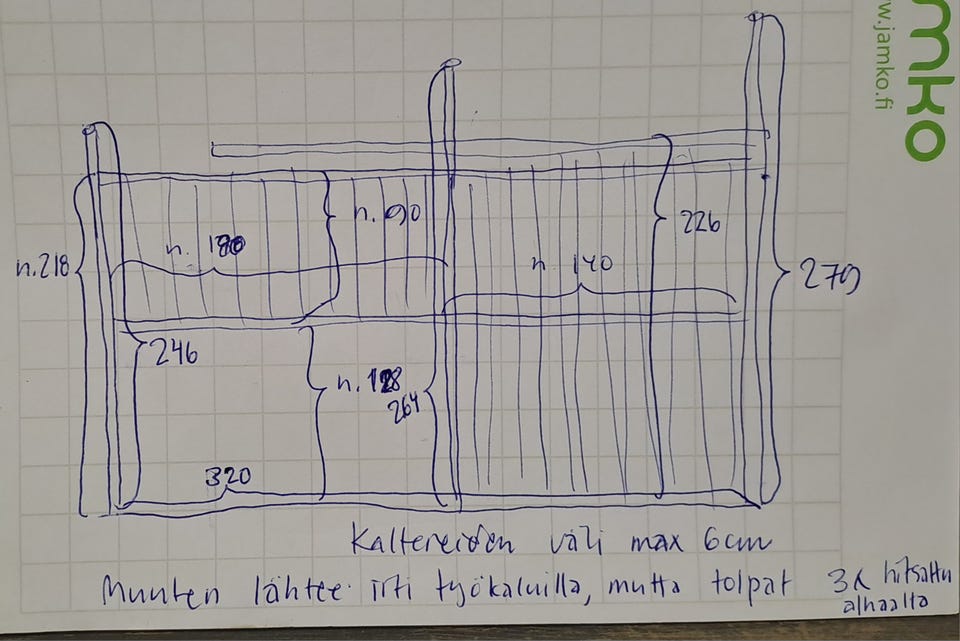 mko
w.jamko.fi
n. 90
n. 180
n 140
226
n.218
279
246
n. 128
264
320
Kaltereiden väli max 6cm
Muuten lähtee irti työkaluilla, mutta tolpat 3x hitsattu
alhaalta